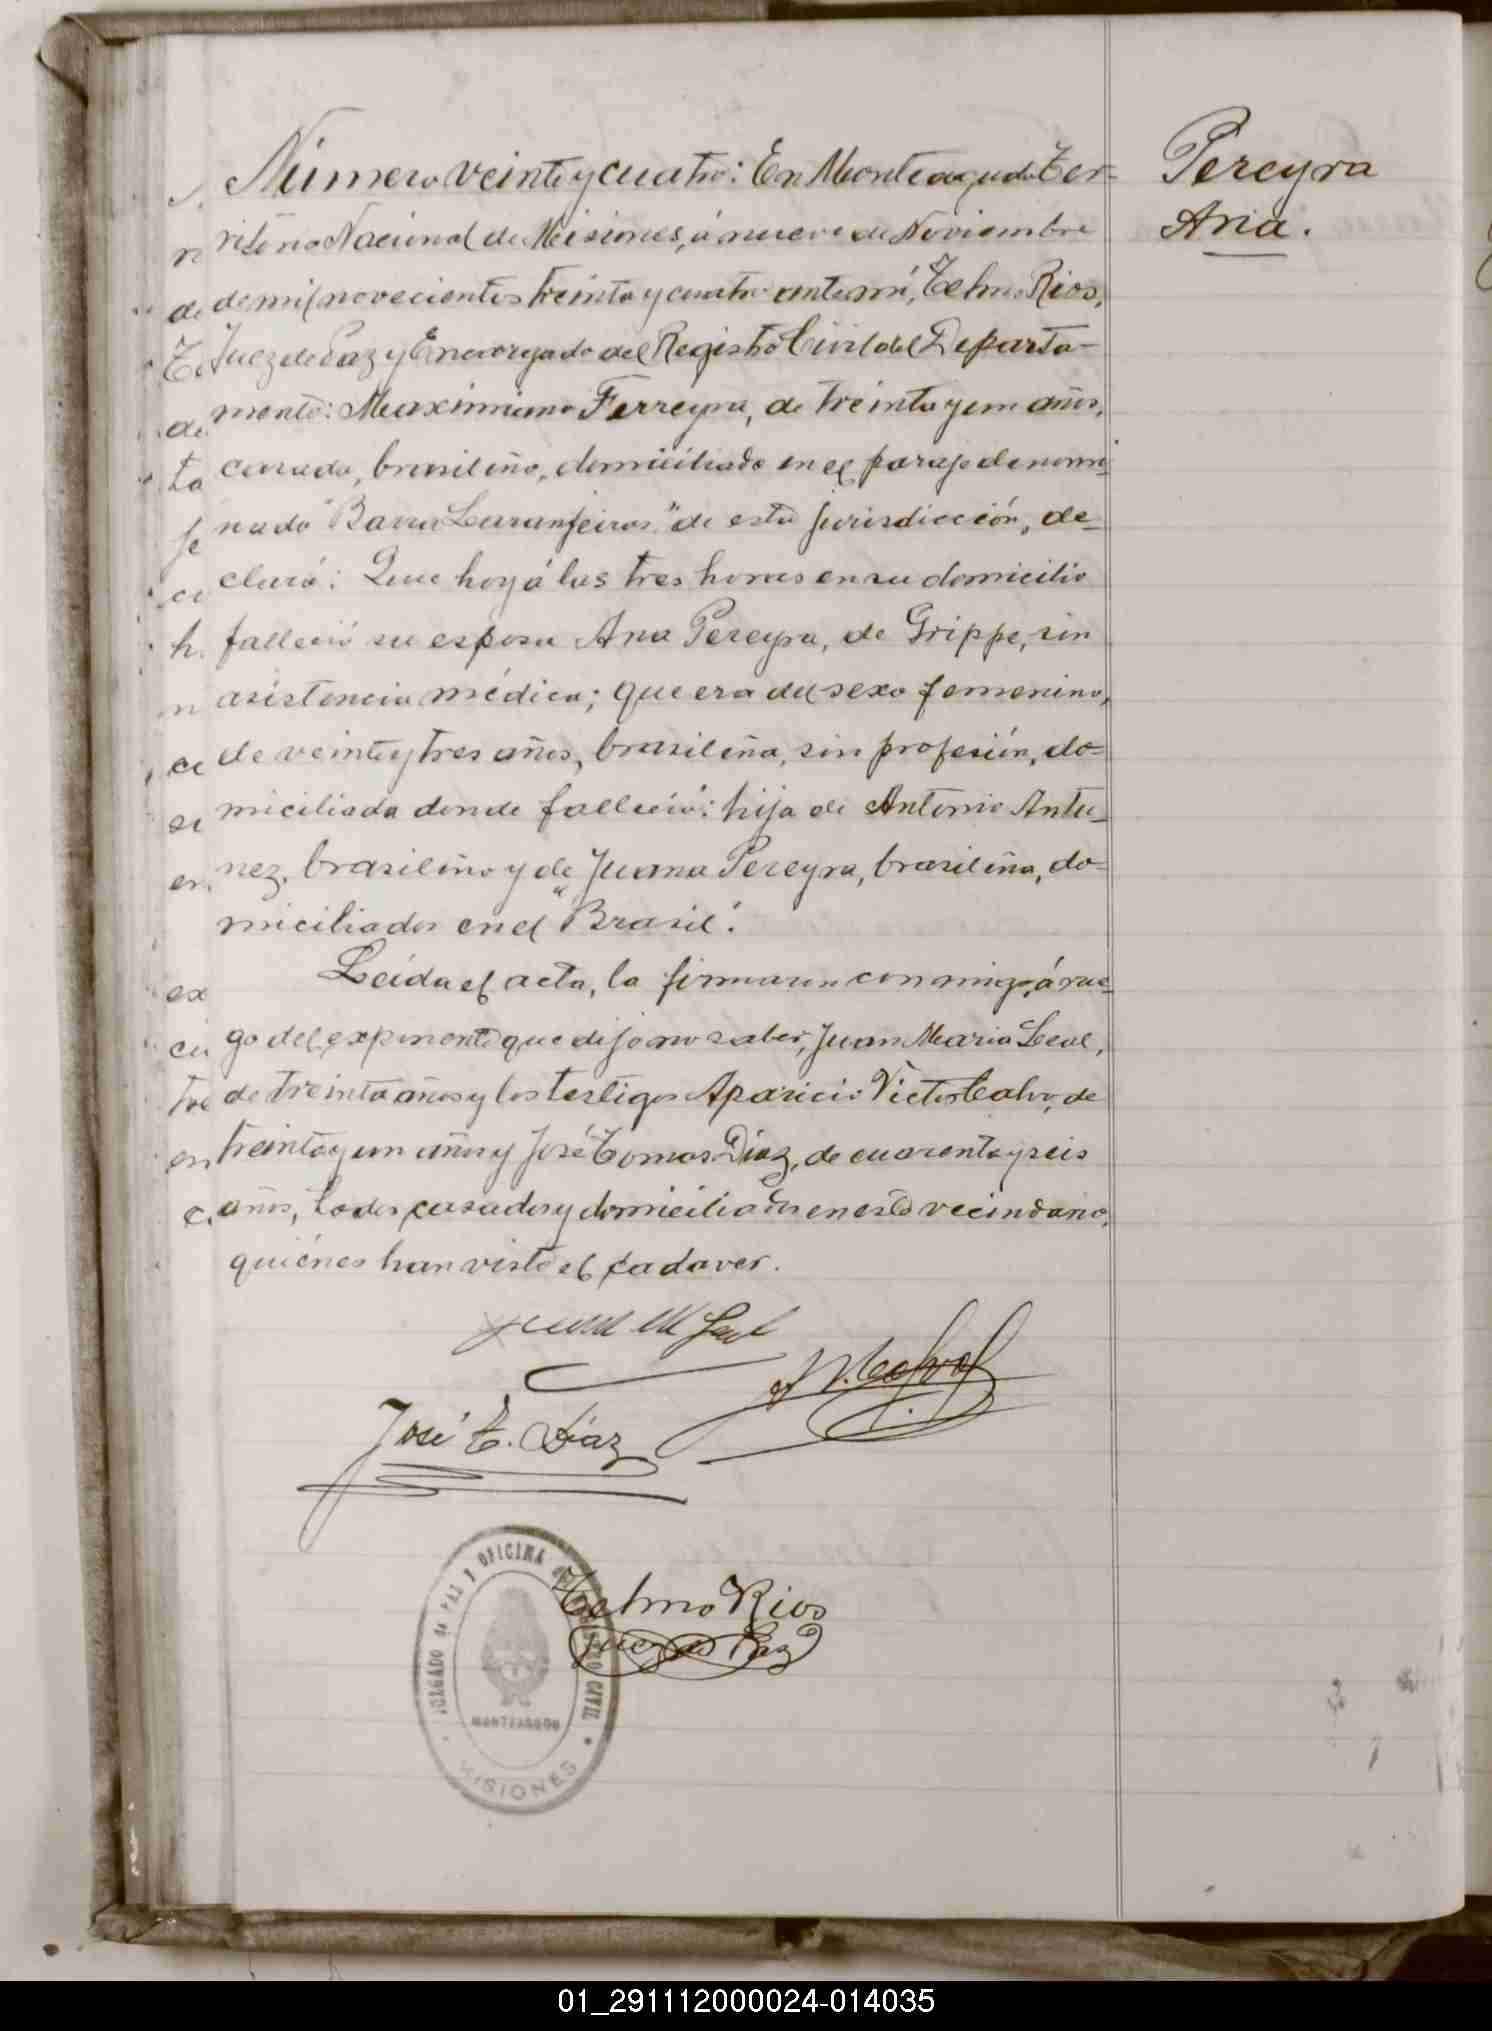 Número veinte y cuatro: En Monteagudo Ter-
ritorio Nacional de Misiones, á nueve de Noviembre
de mil novecientos treinta y cuatro ante mí, Telmo Rios,
Juez de Paz y Encargado del Registro Civil del Departa-
mento: Maximiano Ferreyra, de treinta y un años,
casado, brasileño, domiciliado en el paraje denomi-
nado "Barra Laranjeiras" de esta jurisdicción, de-
claró: Que hoy á las tres horas en su domicilio
falleció su esposa Ana Pereyra, de Grippe, sin
asistencia médica; que era del sexo femenino,
de veinte y tres años, brasileña, sin profesión, do-
miciliada donde falleció: hija de Antonio Antu-
nez, brasileño y de Juana Pereyra, brasileña, do-
miciliados en el "Brasil".
Leida el acta, la firmaron conmigo, á rue-
go del exponente que dijo no saber, Juan Maria Leal,
de treinta años y los testigos Aparicio Victor Calvo, de
treinta y un años y José Tomas Diaz, de cuarenta y seis
años, todos casados y domiciliados en este vecindario,
quiénes han visto el cadaver.
Pereyra
Ana.
Juan M Leal
A V. Calvo
José T. Díaz
Telmo Rios
Juez de Paz
JUZGADO de PAZ y OFICINA del REGISTRO CIVIL
MONTEAGUDO
MISIONES
01_291112000024-014035